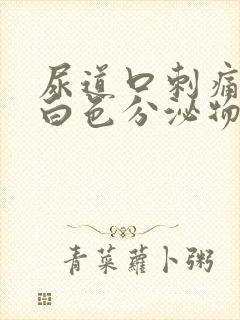 尿道口刺痛
白色分泌物
青菜萝卜粥